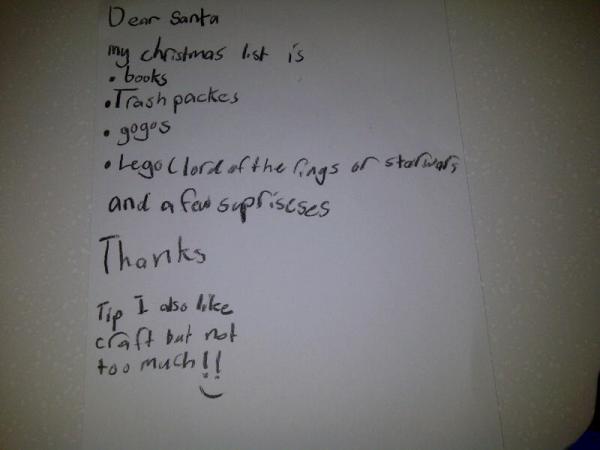 Dear Santa
my christmas list is
• books
• Trash packes
• gogos
• Lego (lord of the rings or starwars
and a few supriseses
Thanks
Tip I also like
craft but not
too much!!